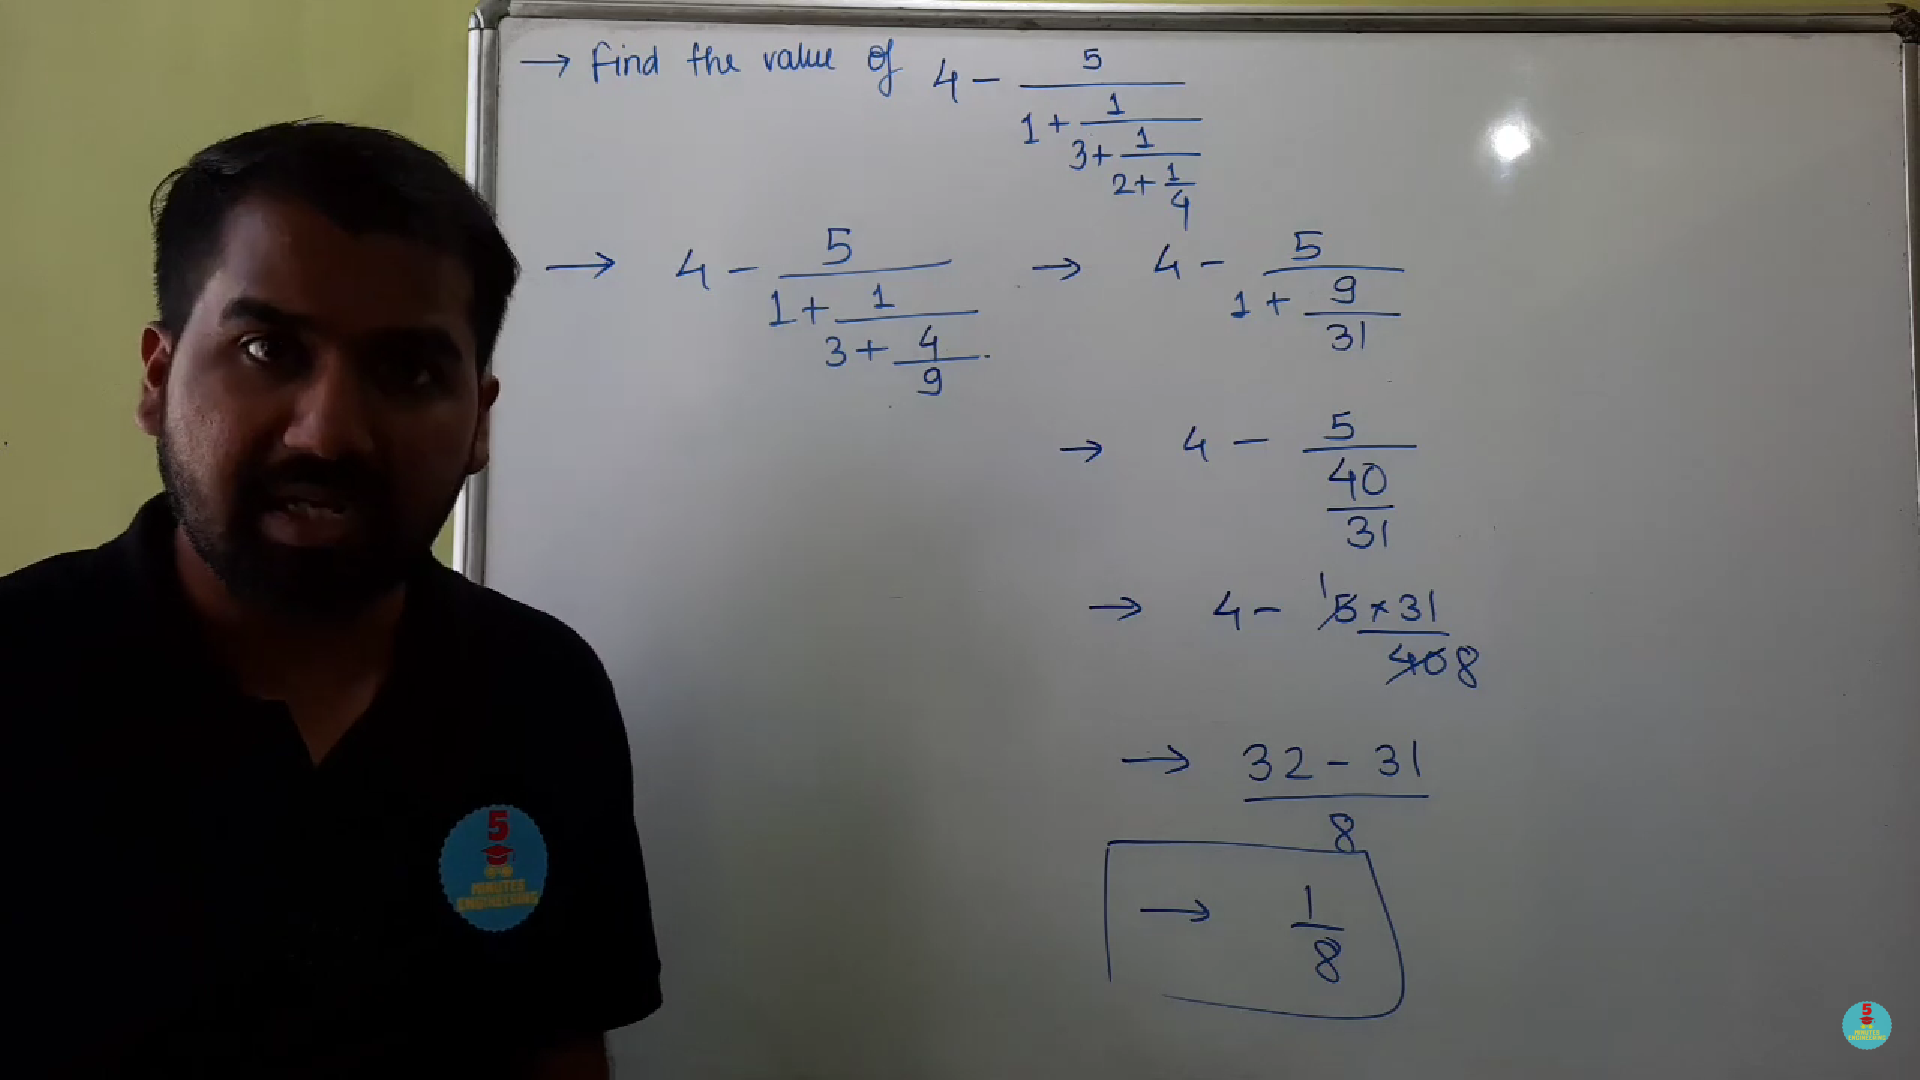 → Find the value of 4 - 5/(1 + 1/(3 + 1/(2 + 1/4)))
→ 4 - 5/(1 + 1/(3 + 4/9)) → 4 - 5/(1 + 9/31)
→ 4 - 5/(40/31)
→ 4 - 1 5 × 31/40 8
→ 32 - 31/8
→ 1/8
5
MINUTES
ENGINEERING
5
MINUTES
ENGINEERING